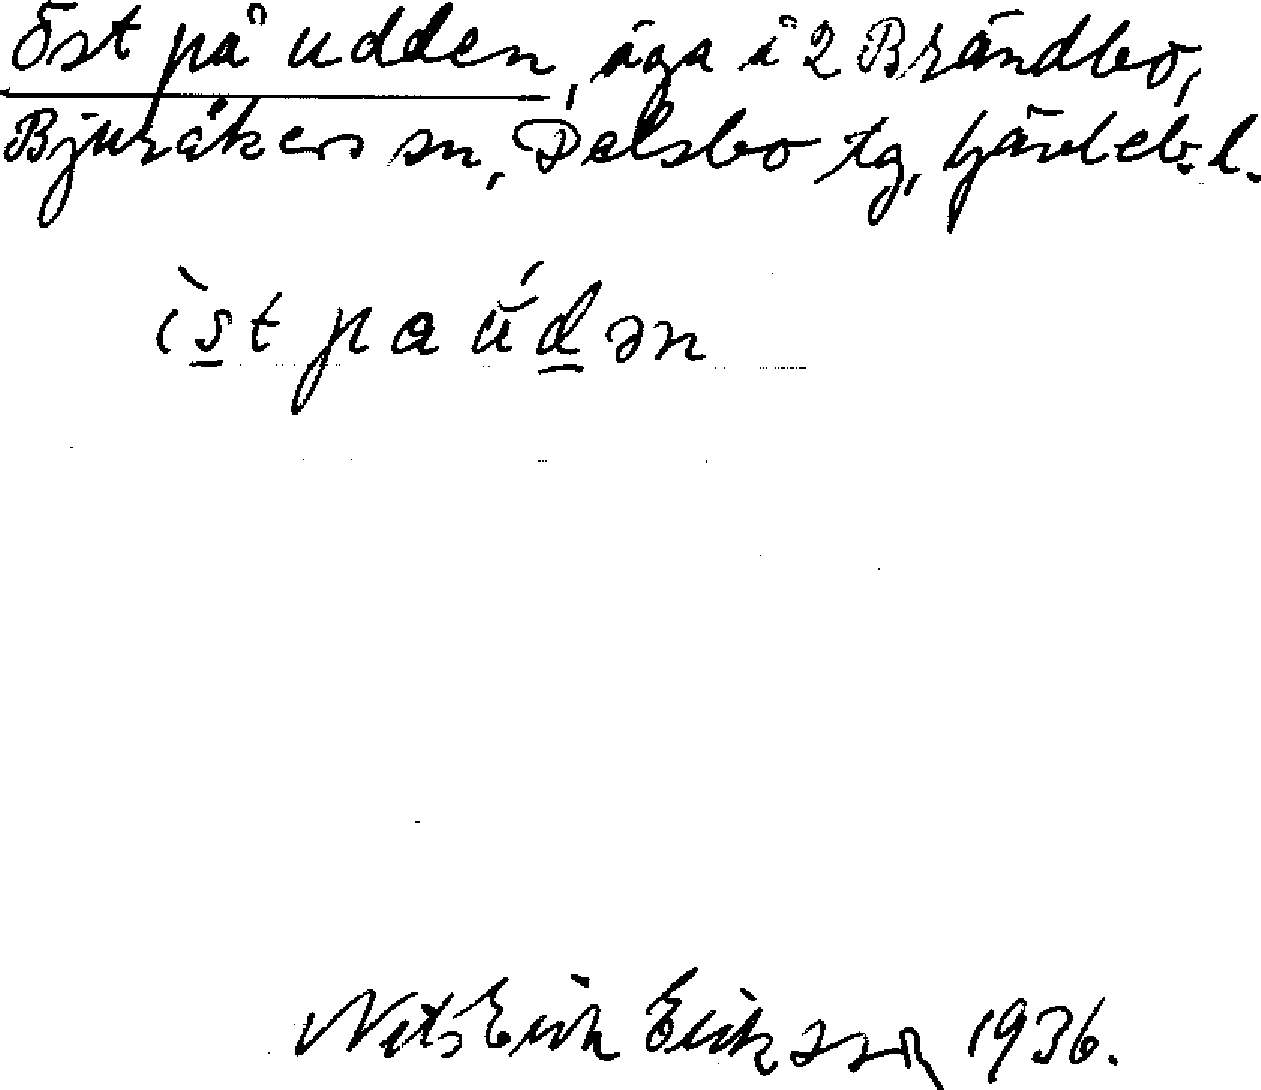 Öst på udden, äga i 2 Brändbo,
Bjuråkers sn, Delsbo tg, Gävleb. l.
ìst pa údən
Nils Erik Eriksson 1936.